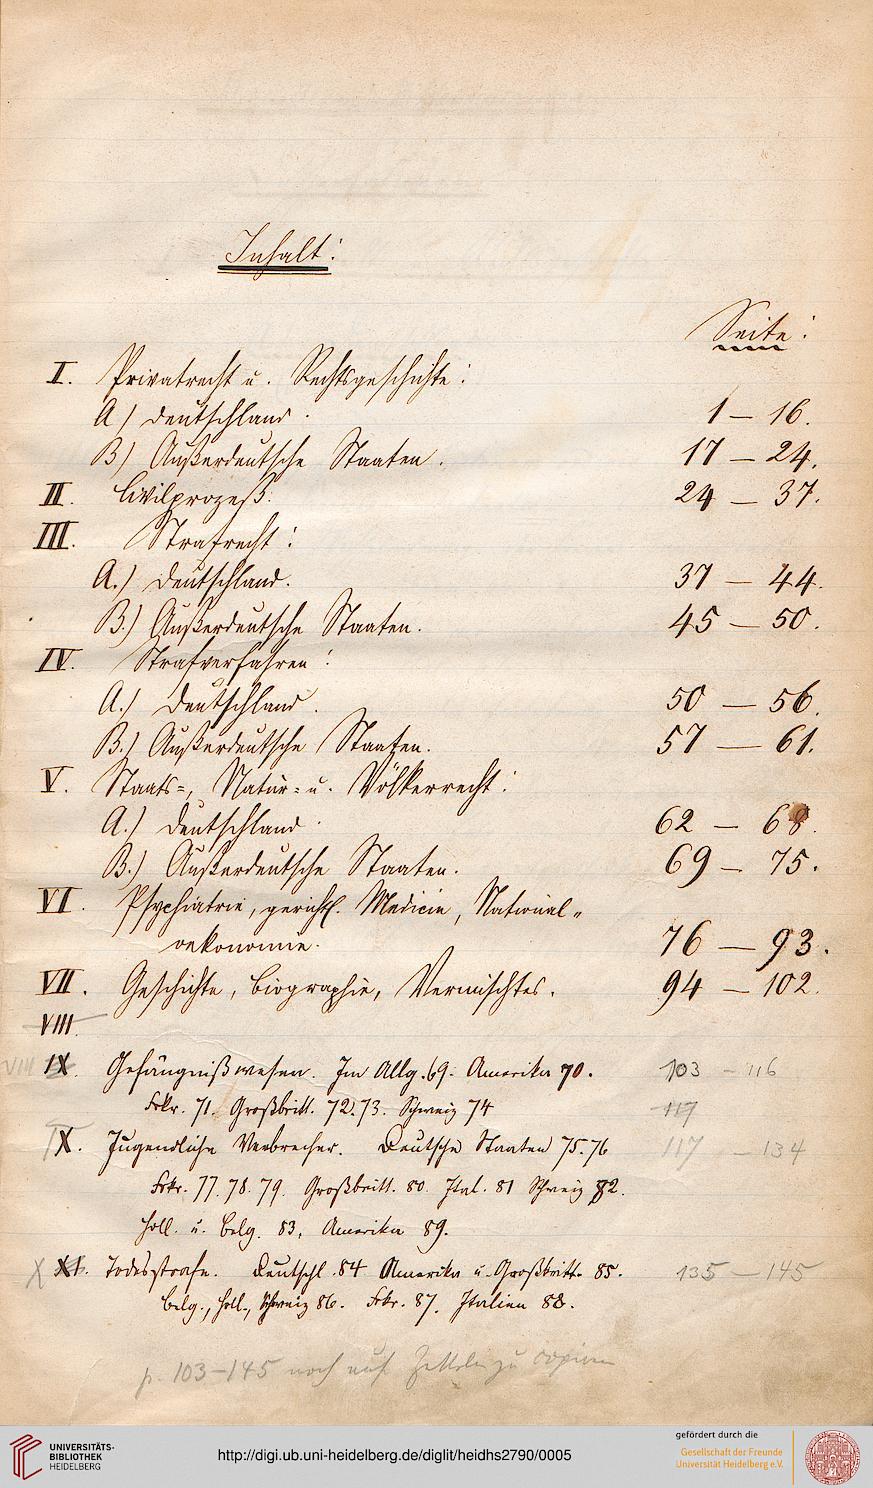 Inhalt:
Seite:
I. Privatrecht u. Rechtsgeschichte:
A) Deutschland. 1 – 16.
B) Außerdeutsche Staaten. 17 – 24.
II. Civilprozeß. 24 – 37.
III. Strafrecht:
A.) Deutschland. 37 – 44.
B.) Außerdeutsche Staaten. 45 – 50.
IV. Strafverfahren:
A.) Deutschland. 50 – 56.
B.) Außerdeutsche Staaten. 57 – 61.
V. Staats-, Natur- u. Völkerrecht:
A.) Deutschland. 62 – 68.
B.) Außerdeutsche Staaten. 69 – 75.
VI. Psychiatrie, gerichtl. Medicin, National-
oekonomie. 76 – 93.
VII. Geschichte, Biographie, Vermischtes. 94 – 102.
VIII.
VIII IX. Gefängnißwesen. Im Allg. 69. Amerika 70. 103 – 116
Frkr. 71. Großbritt. 72.73. Schweiz 74 117
IX X. Jugendliche Verbrecher. Deutsche Staaten 75.76 117 – 134
Frkr. 77. 78. 79. Großbritt. 80. Ital. 81 Schweiz 82.
Holl. u. Belg. 83, Amerika 89.
X XI. Todesstrafe. Deutschl. 84 Amerika u. Großbritt. 85. 135 – 145
Belg., Holl., Schweiz 86. Frkr. 87. Italien 88.
p. 103–145 noch auf Zetteln zu copiren
UNIVERSITÄTS-
BIBLIOTHEK
HEIDELBERG
http://digi.ub.uni-heidelberg.de/diglit/heidhs2790/0005
gefördert durch die
Gesellschaft der Freunde
Universität Heidelberg e.V.